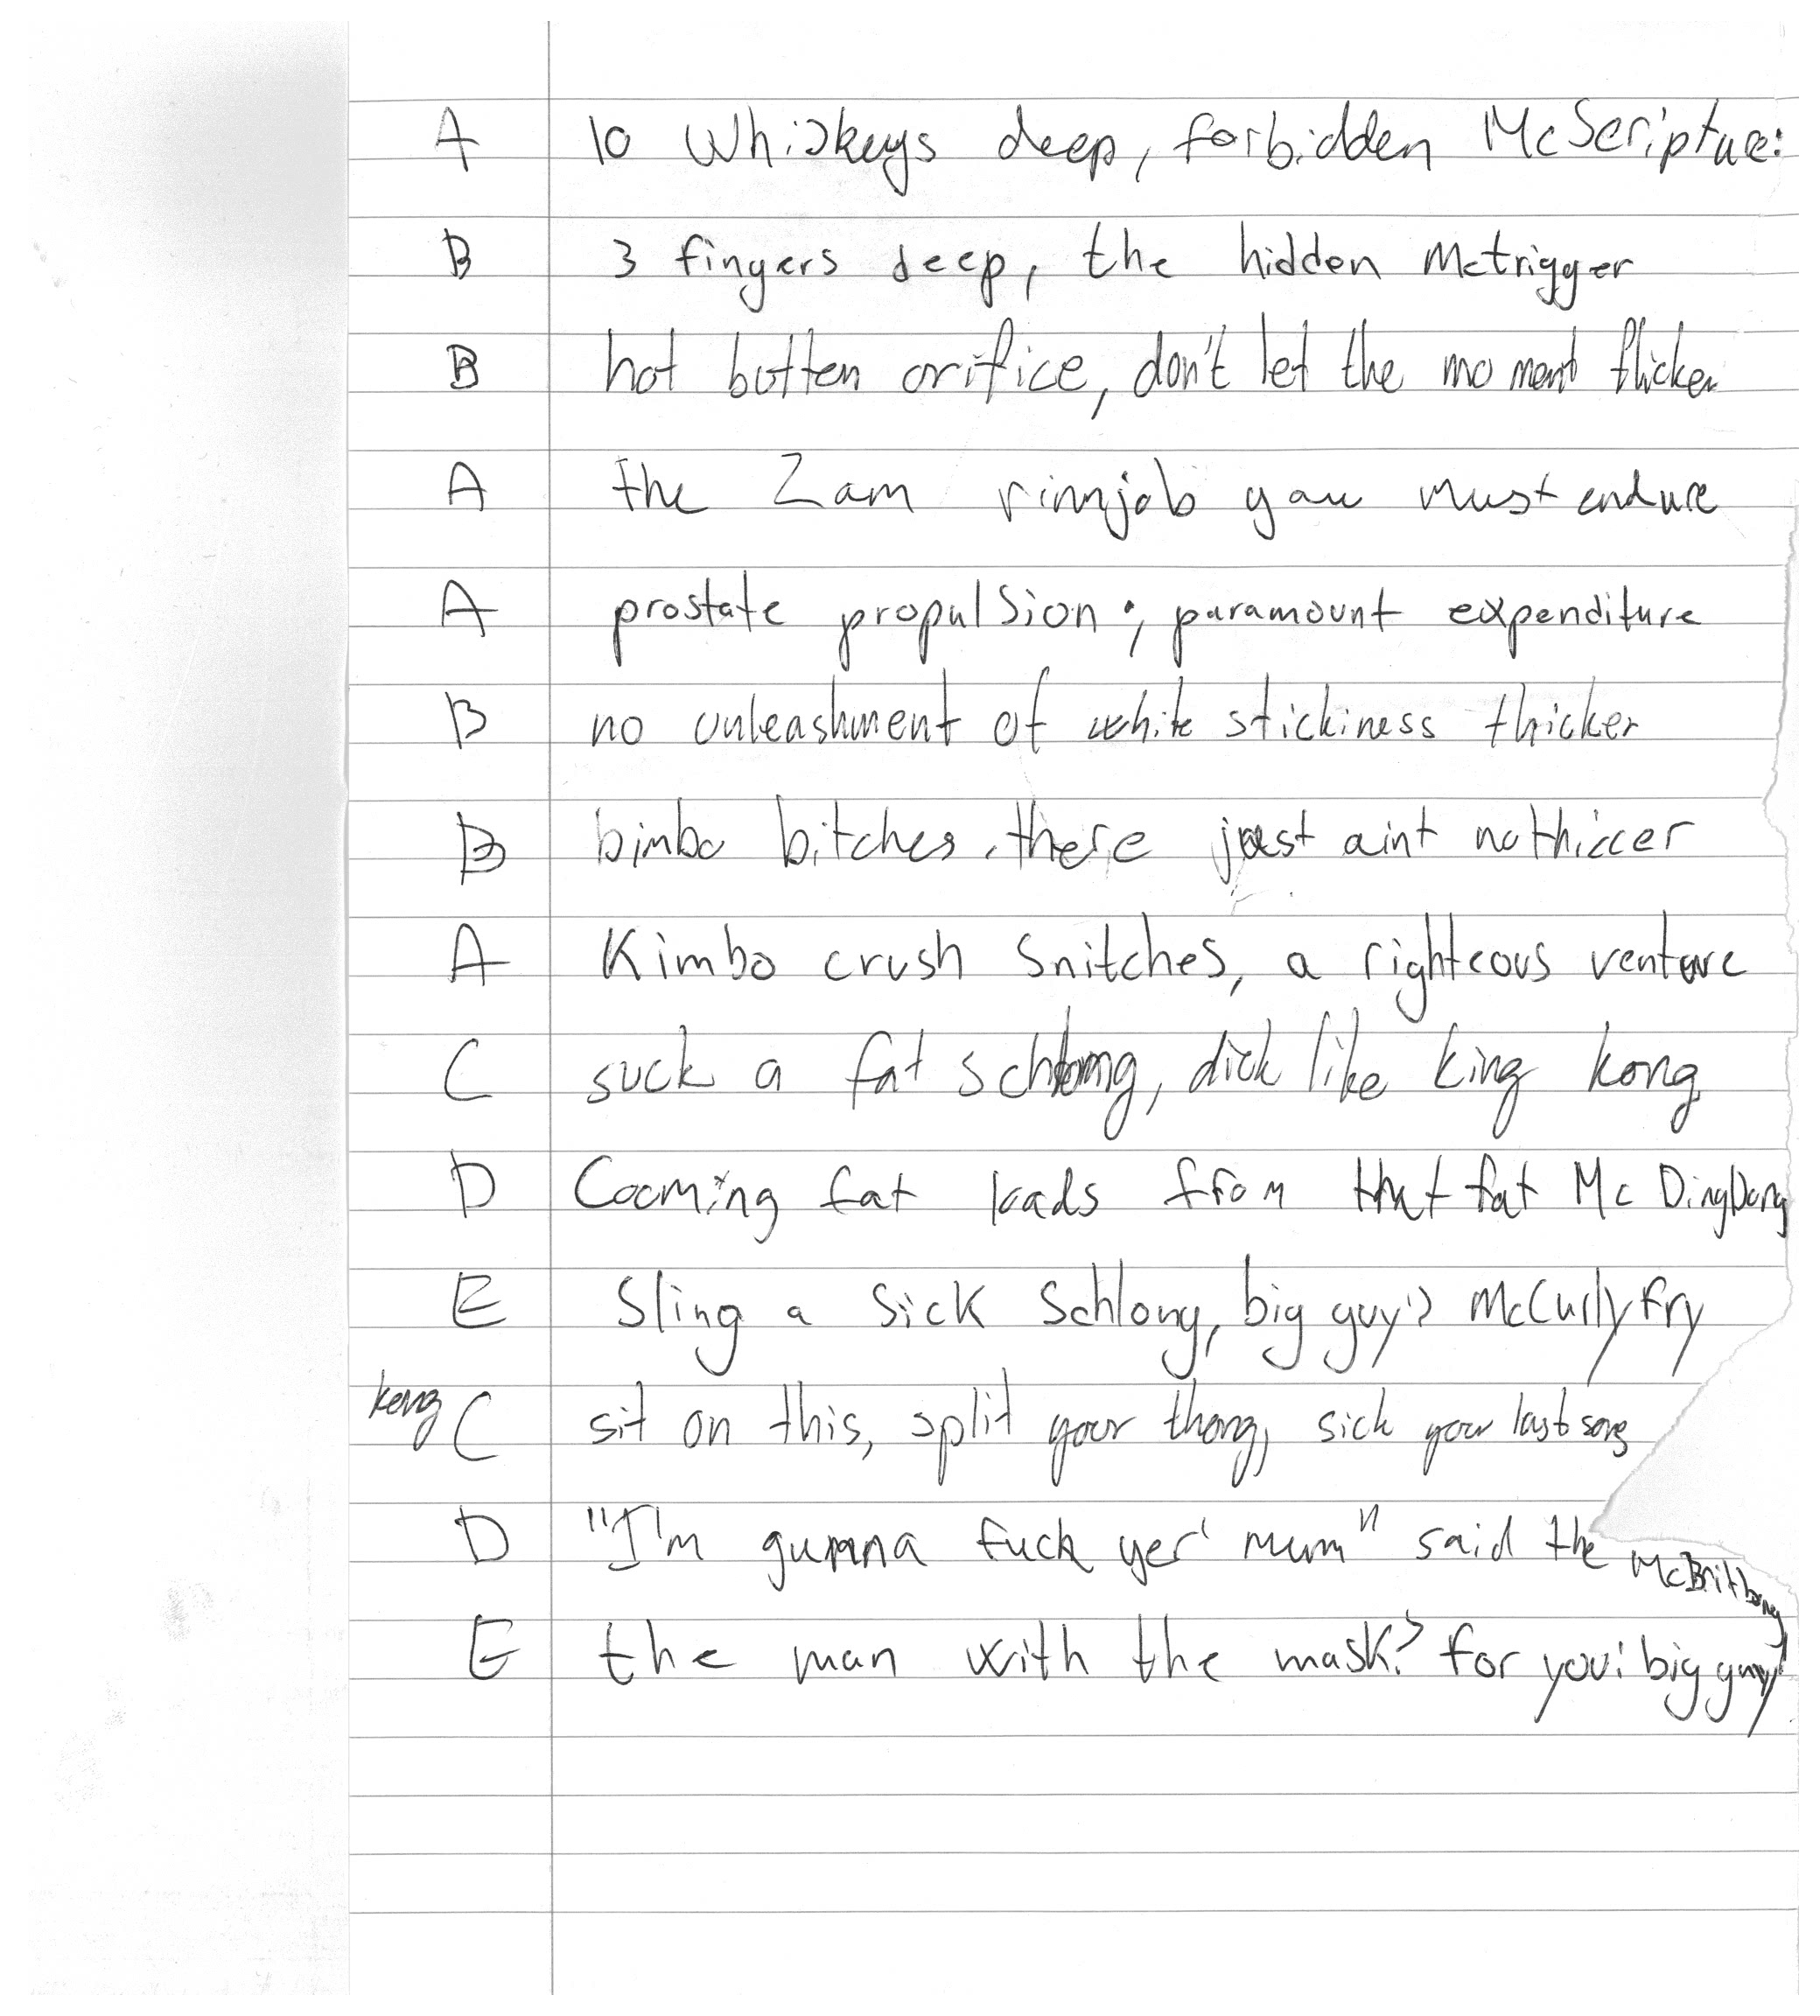 A 10 Whiskeys deep, forbidden McScripture:
B 3 fingers deep, the hidden Mctrigger
B hot button orifice, don't let the moment flicker
A the Zam rimjob you must endure
A prostate propulsion; paramount expenditure
B no unleashment of white stickiness thicker
B bimbo bitches, there just aint no thiccer
A Kimbo crush Snitches, a righteous venture
C suck a fat schlong, dick like king kong
D Cooming fat loads from that fat Mc DingDong
E Sling a Sick Schlong, big guy's McCurlyfry
kong C sit on this, split your thong, sick your last song
D "I'm gunna fuck yer' mum" said the McBritbong
E the man with the mask? for you! big guy